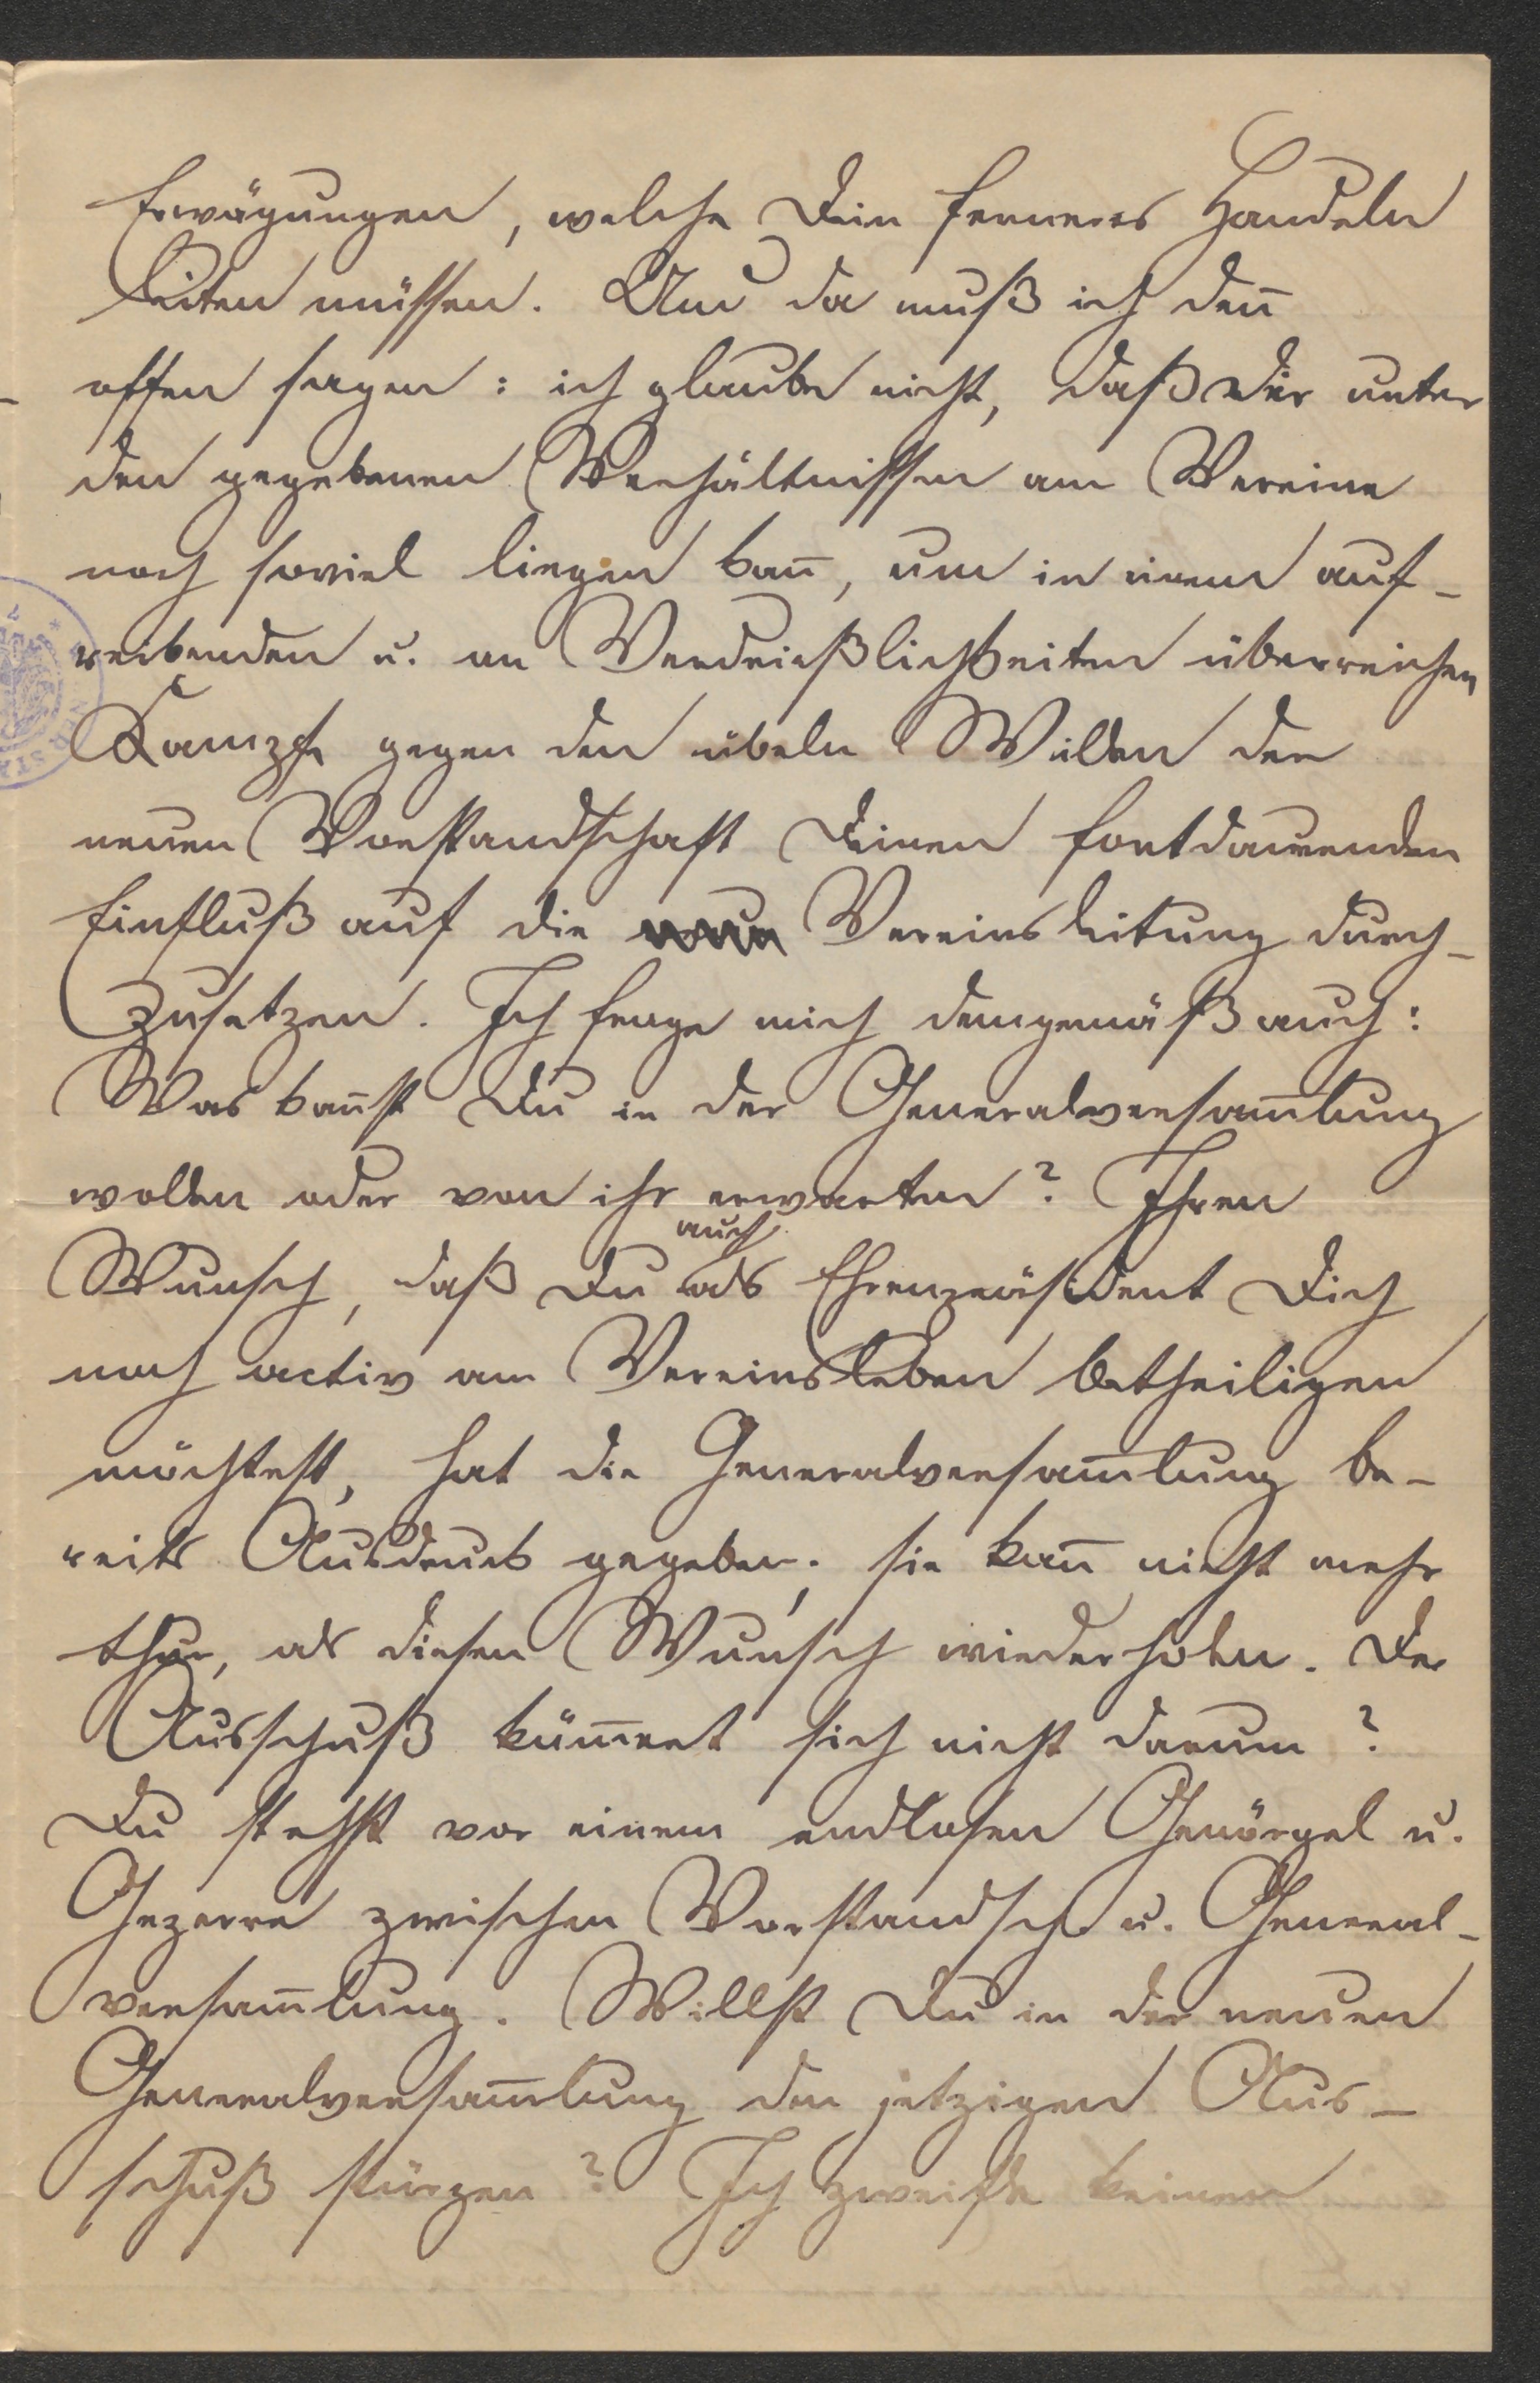 Erwägungen, welche Dein ferneres Handeln
leiten müssen. Und da muß ich den̄
offen sagen: ich glaube nicht, daß Dir unter
den gegebenen Verhältnissen am Vereine
noch soviel liegen kan̄, um in einem auf-
reibenden u. an Verdrießlichkeiten überreichen
Kampfe gegen den übeln Willen der
neuen Vorstandschaft Deinen fortdauernden
Einfluß auf die Vereinsleitung durch-
zusetzen. Ich frage mich demgemäß auch:
Was kan̄st Du in der Generalversam̄lung
wollen oder von ihr erwarten? Ihren
auch
Wunsch, daß Du als Ehrenpräsident Dich
noch activ am Vereinsleben betheiligen
möchtest, hat die Generalversam̄lung be-
reits Ausdruck gegeben; sie kan̄ nicht mehr
thun, als diesen Wunsch wiederholen. Der
Ausschuß küm̄ert sich nicht darum?
Du stehst vor einem endlosen Genörgel u.
Gezerre zwischen Vorstandsch. u. General-
versam̄lung. Willst Du in der neuen
Generalversam̄lung den jetzigen Aus-
schuß stürzen? Ich zweifle keinen